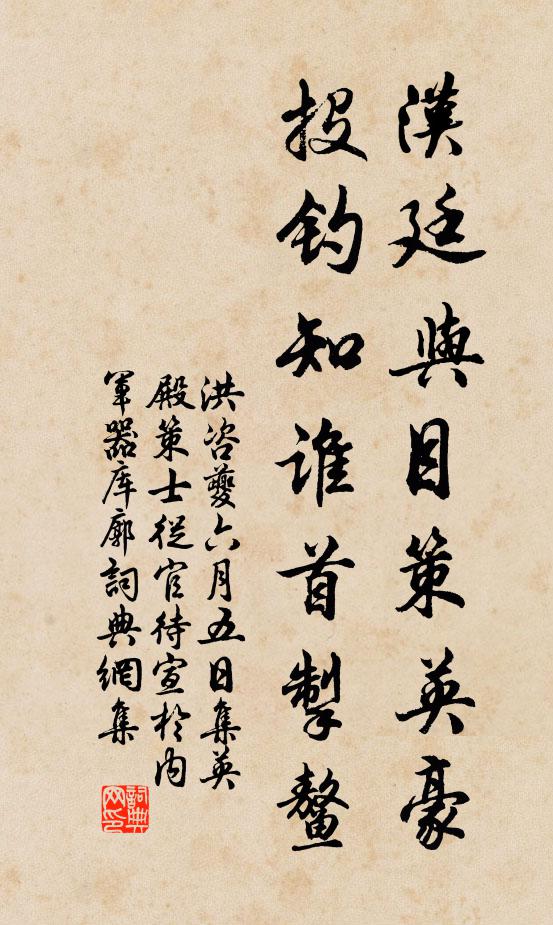 漢廷與目策英豪
投钓知誰首掣鰲
洪咨夔六月五日集英
殿策士從官待宣於内
軍器库廊詞典網集
詞典网印